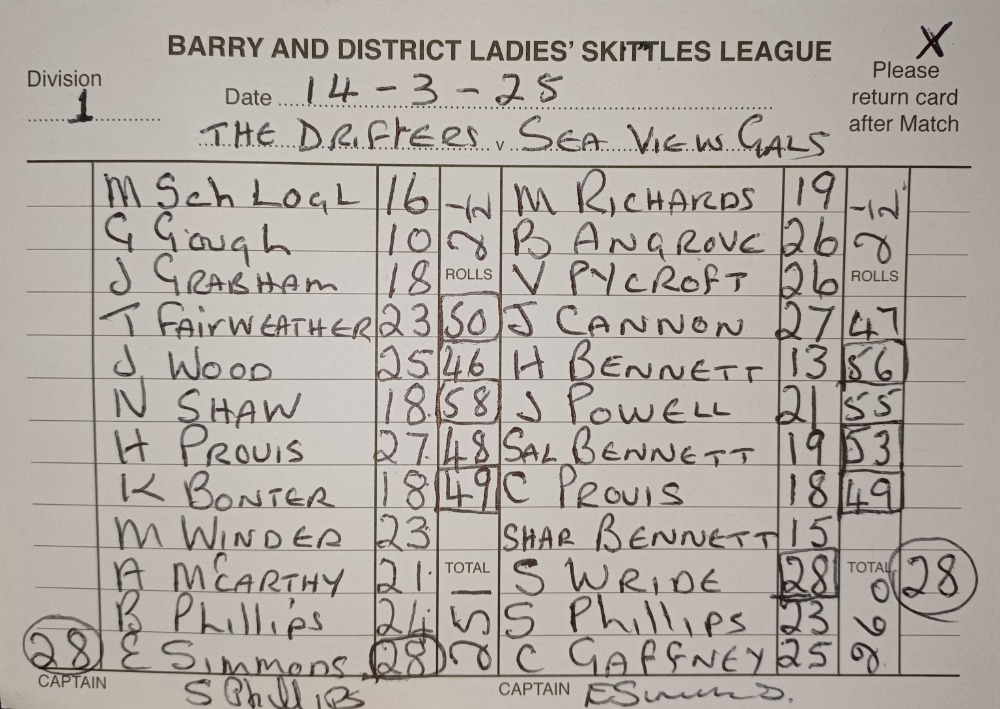 BARRY AND DISTRICT LADIES' SKITTLES LEAGUE X
Division 1 Date 14-3-25 Please return card after Match
THE DRIFTERS v SEA VIEW GALS
M SchLOGL 16 2½ M RICHARDS 19 2½
G Gough 10 B ANGROVE 26
J GRABHAM 18 ROLLS V PYCROFT 26 ROLLS
T FAIRWEATHER 23 50 J CANNON 27 47
J WOOD 25 46 H BENNETT 13 56
N SHAW 18 58 J POWELL 21 55
H PROVIS 27 48 SAL BENNETT 19 53
K BONTER 18 49 C PROVIS 18 49
M WINDER 23 SHAR BENNETT 15
A McCARTHY 21 TOTAL 251 S WRIDE 28 TOTAL 260 28
B Phillips 24 S Phillips 23
28 E Simmons 28 C GAFFNEY 25
CAPTAIN S Phillips CAPTAIN E Simmons.